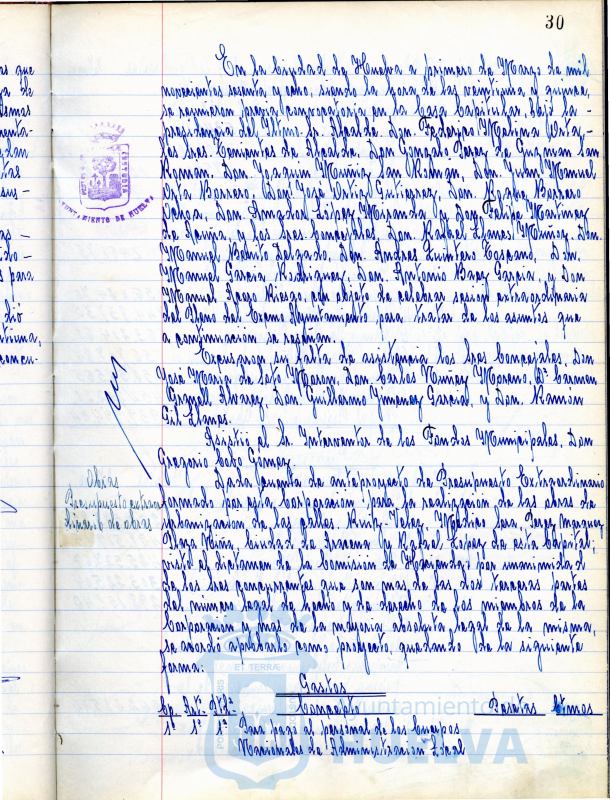 30
En la Ciudad de Huelva a primero de Marzo de mil
novecientos sesenta y ocho, siendo la hora de las veintiuna y quince,
se reunieron previa convocatoria en la Casa Capitular, bajo la
presidencia del Iltmo. Sr. Alcalde Don Federico Molina Orta,
los Sres. Tenientes de Alcalde, Don Gonzalo Perez de Guzman San
Roman, Don Joaquin Muñiz San Roman, Don Juan Manuel
Orta Borrero, Don José Ortiz Gutierrez, Don Roque Barrero
Ochoa, Don Amador Lopez Miranda y Don Felipe Martinez
de Acuña, y los Sres. Concejales, Don Rafael Llanes Muñoz, Don
Manuel Benito Delgado, Don Andres Quintero Toscano, Don
Manuel Garcia Rodriguez, Don Antonio Baez Garcia y Don
Manuel Rozo Riego, con objeto de celebrar sesion extraordinaria
del Pleno del Excmo Ayuntamiento para tratar de los asuntos que
a continuacion se reseñan.
Excusaron su falta de asistencia los Sres Concejales, Don
José Maria de Soto Moron, Don Carlos Nuñez Moreno, Dª Carmen
Granell Alvarez, Don Guillermo Jimenez Garcia, y Don Ramón
Gil Llanes.
Asistió el Sr. Interventor de los Fondos Municipales, Don
Gregorio Cobo Gomez.
Obras
Presupuesto extraor
dinario de obras
Dada cuenta de anteproyecto de Presupuesto Extraordinario
formado por esta Corporación para la realización de las obras de
urbanizacion de las calles Ruiz Velez, Médico Sra. Perez Marquez
Plaza Niña, Ciudad de Aracena y Rafael Lopez de esta Capital;
visto el dictamen de la Comisión de Hacienda, por unanimidad
de los Sres concurrentes que son mas de las dos terceras partes
del número legal de hecho y de derecho de los miembros de la
Corporación y mas de la mayoria absoluta legal de la misma,
se acordó aprobarlo como proyecto, quedando de la siguiente
forma:
Gastos
Cp. Artº. Ptdª. Concepto Pesetas Ctmos
1º 1º 1ª Para pago al personal de los Cuerpos
Nacionales de Administración Local
AYUNTAMIENTO DE HUELVA
Ayuntamiento de
HUELVA